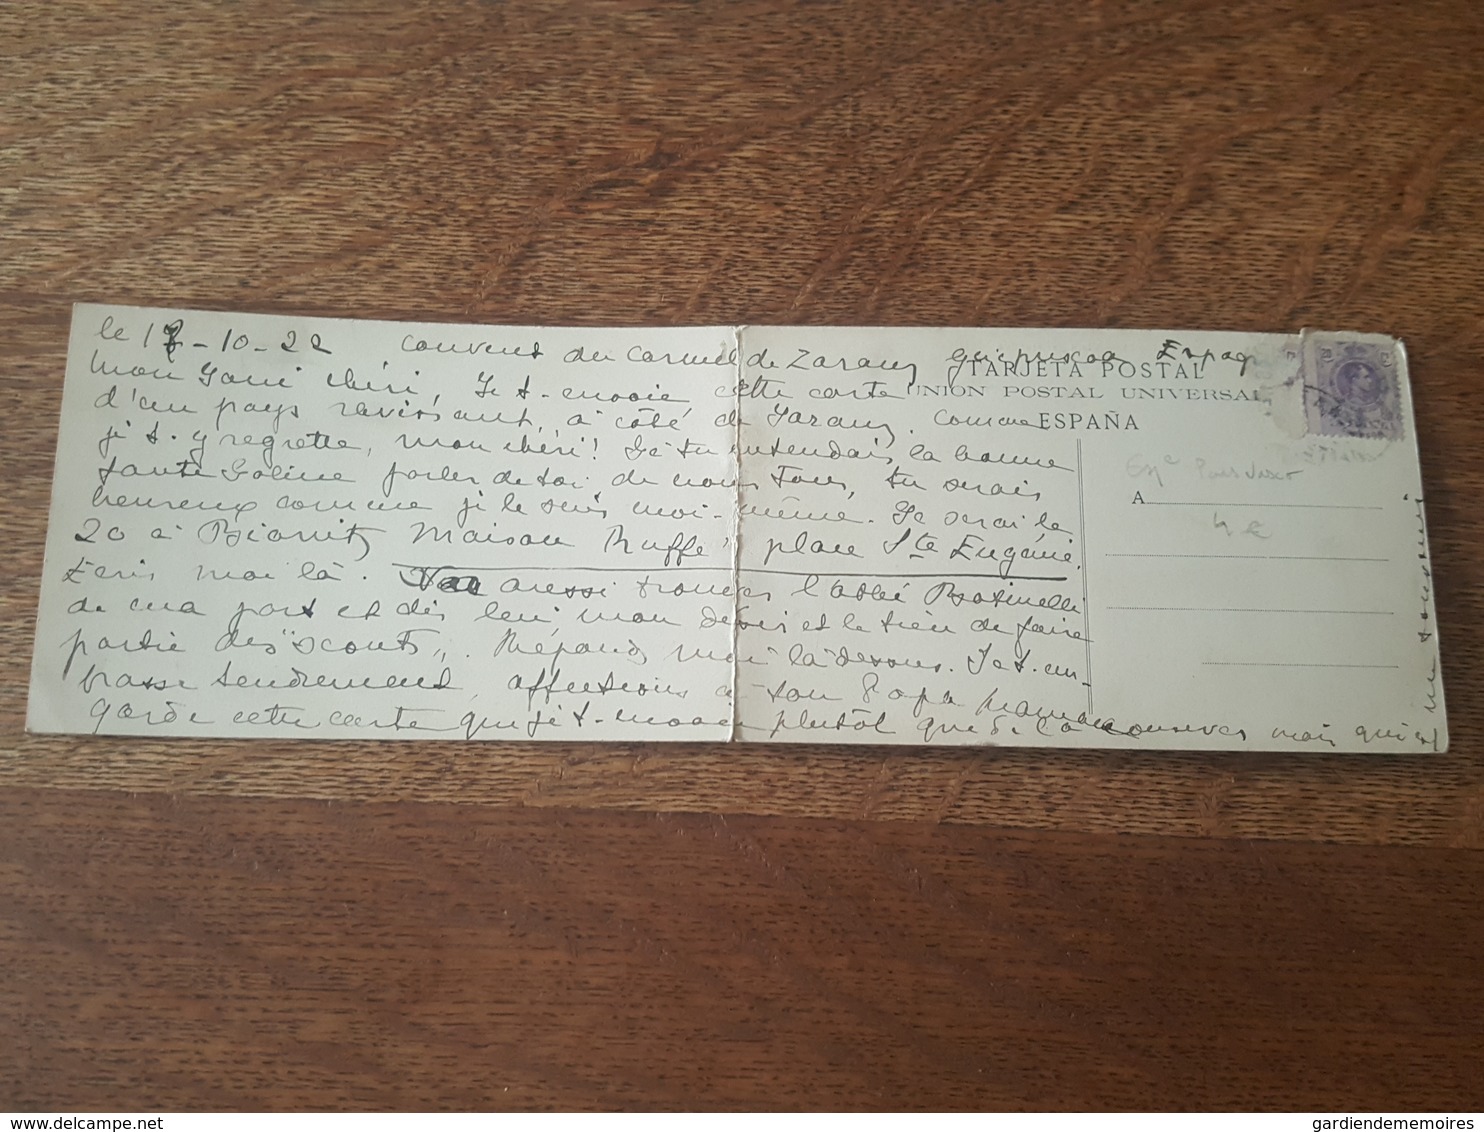 le 17-10-22 couvent du Carmel de Zarauz Guipuscoa Espag
TARJETA POSTAL
mon chéri, Je t'envoie cette carte
UNION POSTAL UNIVERSAL
d'un pays ravissant, à côté de Zarauz. Comme
ESPAÑA
je t'y regrette, mon chéri! Si tu entendais la bonne
tante parler de toi de nous tous, tu serais
A
heureux comme je le suis moi-même. Je serai le
20 à Biarritz Maison Ruffé place Ste Eugénie.
Ecris moi là. aussi trouver l'abbé
de ma part et dis lui mon désir et le tien de faire
partie des "scouts". Réponds moi là dessus. Je t'em-
brasse tendrement, affections à ton Papa
Garde cette carte que je t'envoie plutôt que de la conserver mais qui est
un souvenir
gardiendememoires